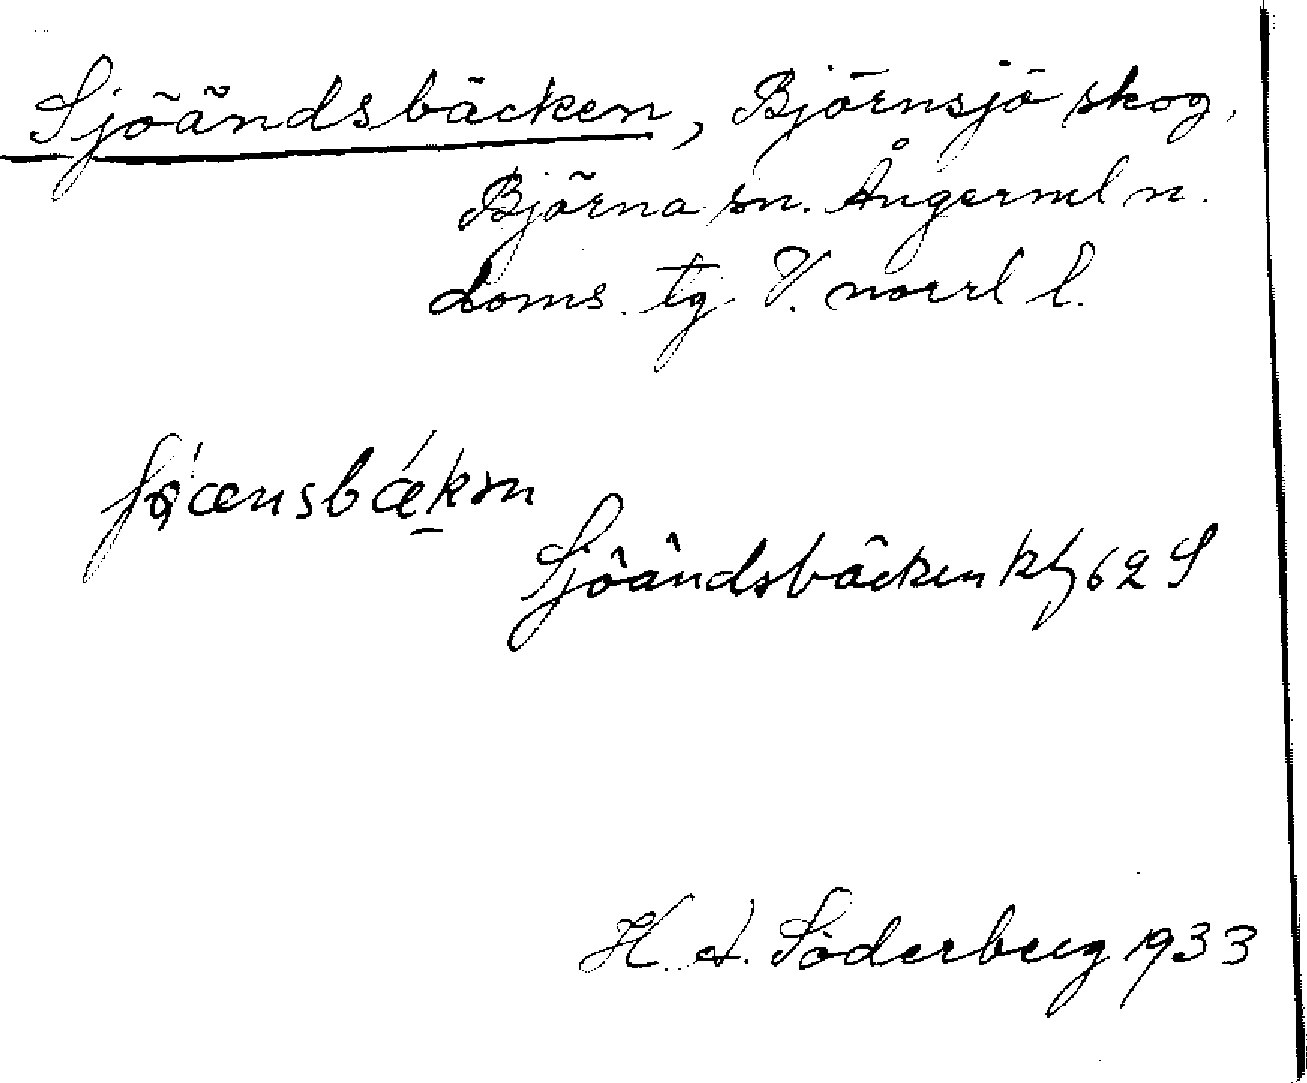 Sjöändsbäcken, Björnsjö skog,
Björna sn. Ångerml n.
doms. tg. V. norrl l.
Sjöändsbäcken kbl 62 S
H. A. Söderberg 1933